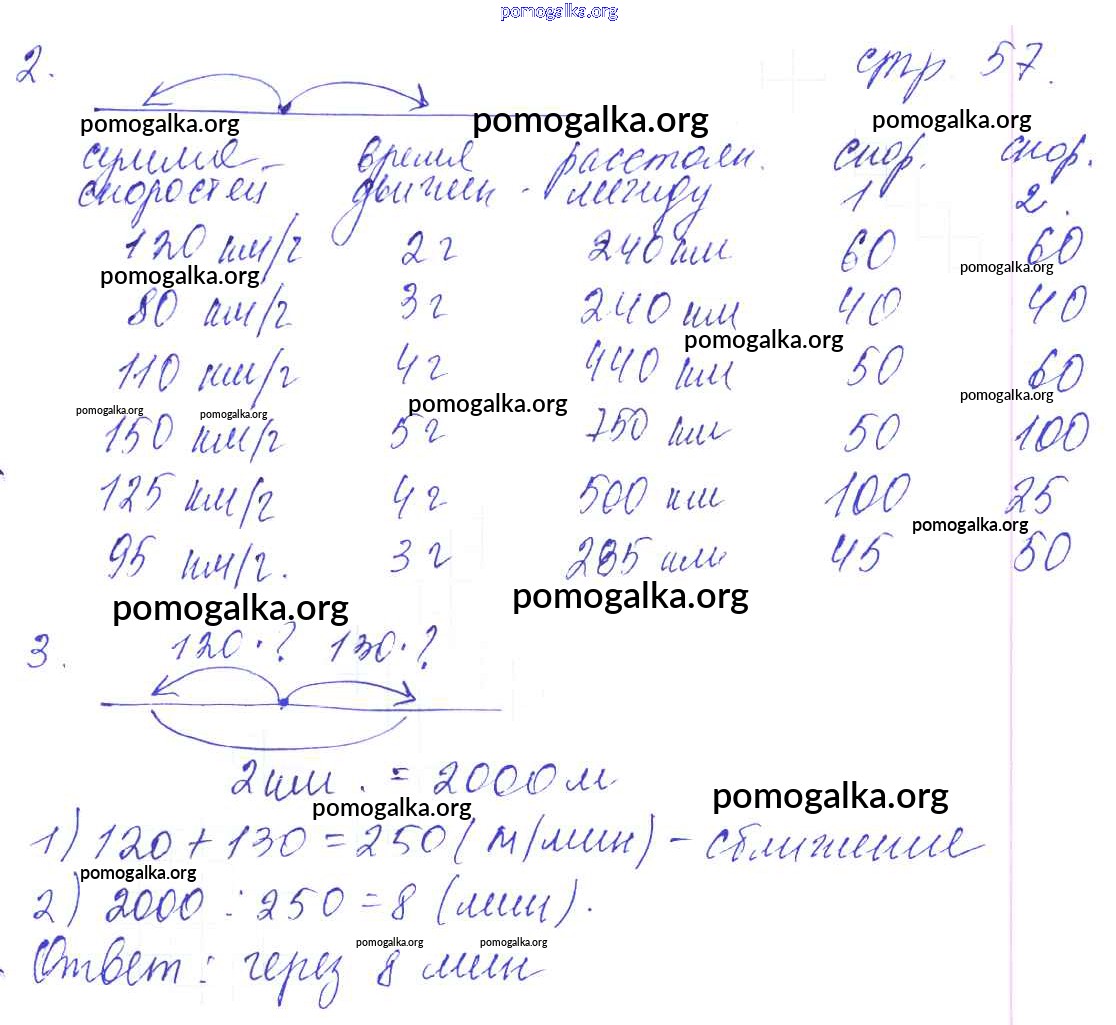 pomogalka.org
2.
стр. 57.
pomogalka.org pomogalka.org pomogalka.org
сумма время расстоян. скор. скор.
скоростей движен. между 1 2.
120 км/ч 2 ч 240 км 60 60
pomogalka.org pomogalka.org
80 км/ч 3 ч 240 км 40 40
pomogalka.org
110 км/ч 4 ч 440 км 50 60
pomogalka.org pomogalka.org pomogalka.org pomogalka.org
150 км/ч 5 ч 750 км 50 100
125 км/ч 4 ч 500 км 100 25
pomogalka.org
95 км/ч. 3 ч 285 км 45 50
pomogalka.org pomogalka.org
3. 120·? 130·?
2 км. = 2000 м
pomogalka.org pomogalka.org
1) 120 + 130 = 250 (м/мин) – сближение
pomogalka.org
2) 2000 : 250 = 8 (мин).
pomogalka.org pomogalka.org
Ответ: через 8 мин